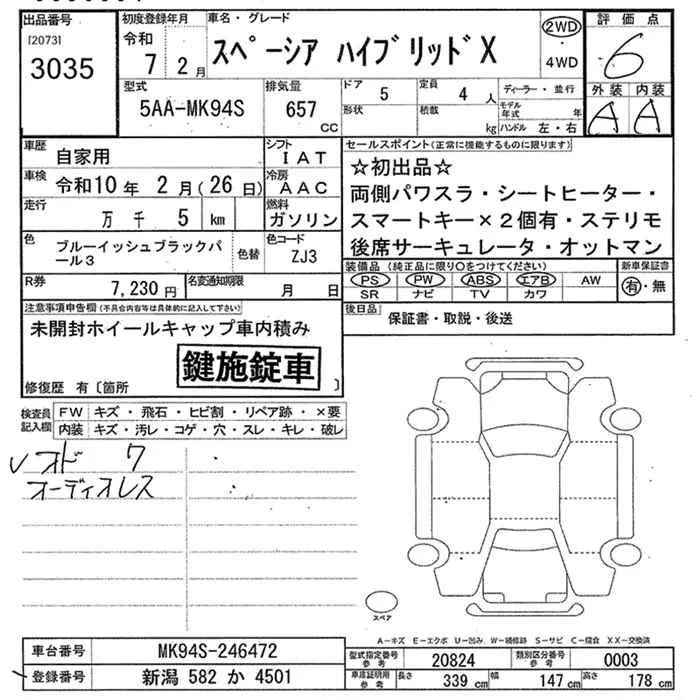 出品番号
[2073]
3035
初度登録年月
令和
7 2月
車名・グレード
スペーシア ハイブリッドX
2WD
・
4WD
評価点
6
外装 内装
A A
型式
5AA-MK94S
排気量
657
CC
ドア
5
形状
定員
4 人
積載
kg
ディーラー・並行
モデル年式 年
ハンドル 左・右
車歴
自家用
シフト
IAT
車検
令和10年 2月(26日)
冷房
AAC
走行
万 千 5 km
燃料
ガソリン
色
ブルーイッシュブラックパール3
色替
色コード
ZJ3
R券
7,230円
名変通知期限
月 日
セールスポイント(正常に機能するものに限ります)
☆初出品☆
両側パワスラ・シートヒーター・
スマートキー×2個有・ステリモ
後席サーキュレータ・オットマン
装備品(純正品に限り○をつけてください)
PS PW ABS エアB AW
SR ナビ TV カワ
新車保証書
有・無
後日品
保証書・取説・後送
注意事項申告欄(不具合内容等は具体的に記入して下さい)
未開封ホイールキャップ車内積み
鍵施錠車
修復歴 有〔箇所 〕
検査員記入欄
FW キズ・飛石・ヒビ割・リペア跡・×要
内装 キズ・汚レ・コゲ・穴・スレ・キレ・破レ
レオド ワ
オーディオレス
スペア
A−キズ E−エクボ U−凹み W−補修跡 S−サビ C−腐食 XX−交換済
車台番号
MK94S-246472
登録番号
新潟 582 か 4501
型式指定番号
参考
20824
類別区分番号
参考
0003
車庫証明用
参考
長さ 339 cm 幅 147 cm 高さ 178 cm